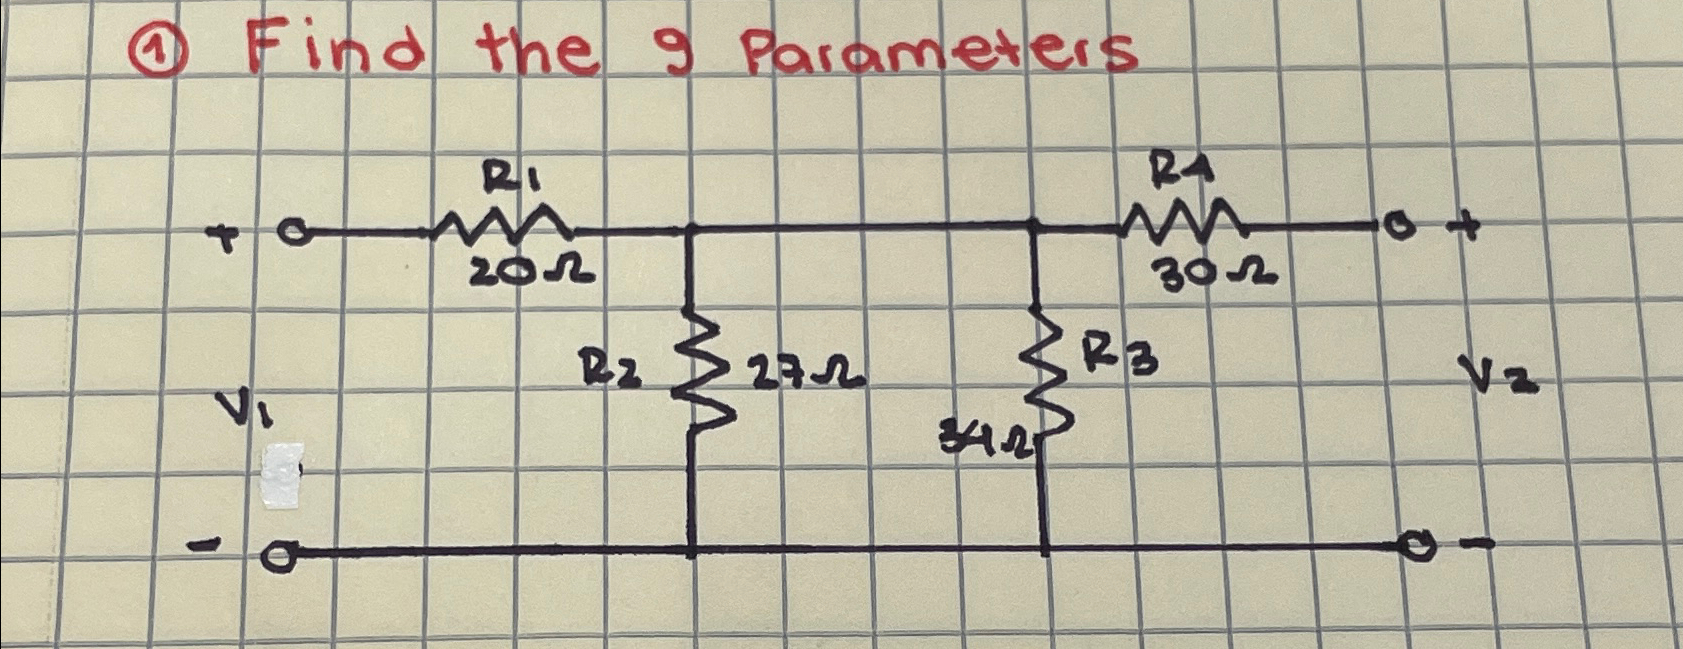 ① Find the g Parameters
R1
20Ω
R4
30Ω
R2
27Ω
R3
34Ω
V1
V2
+
+
-
-